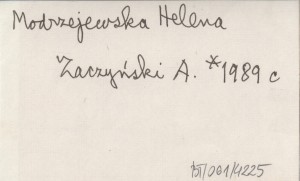 Modrzejewska Helena
Zaczyński A. *1989 c
/001/4225